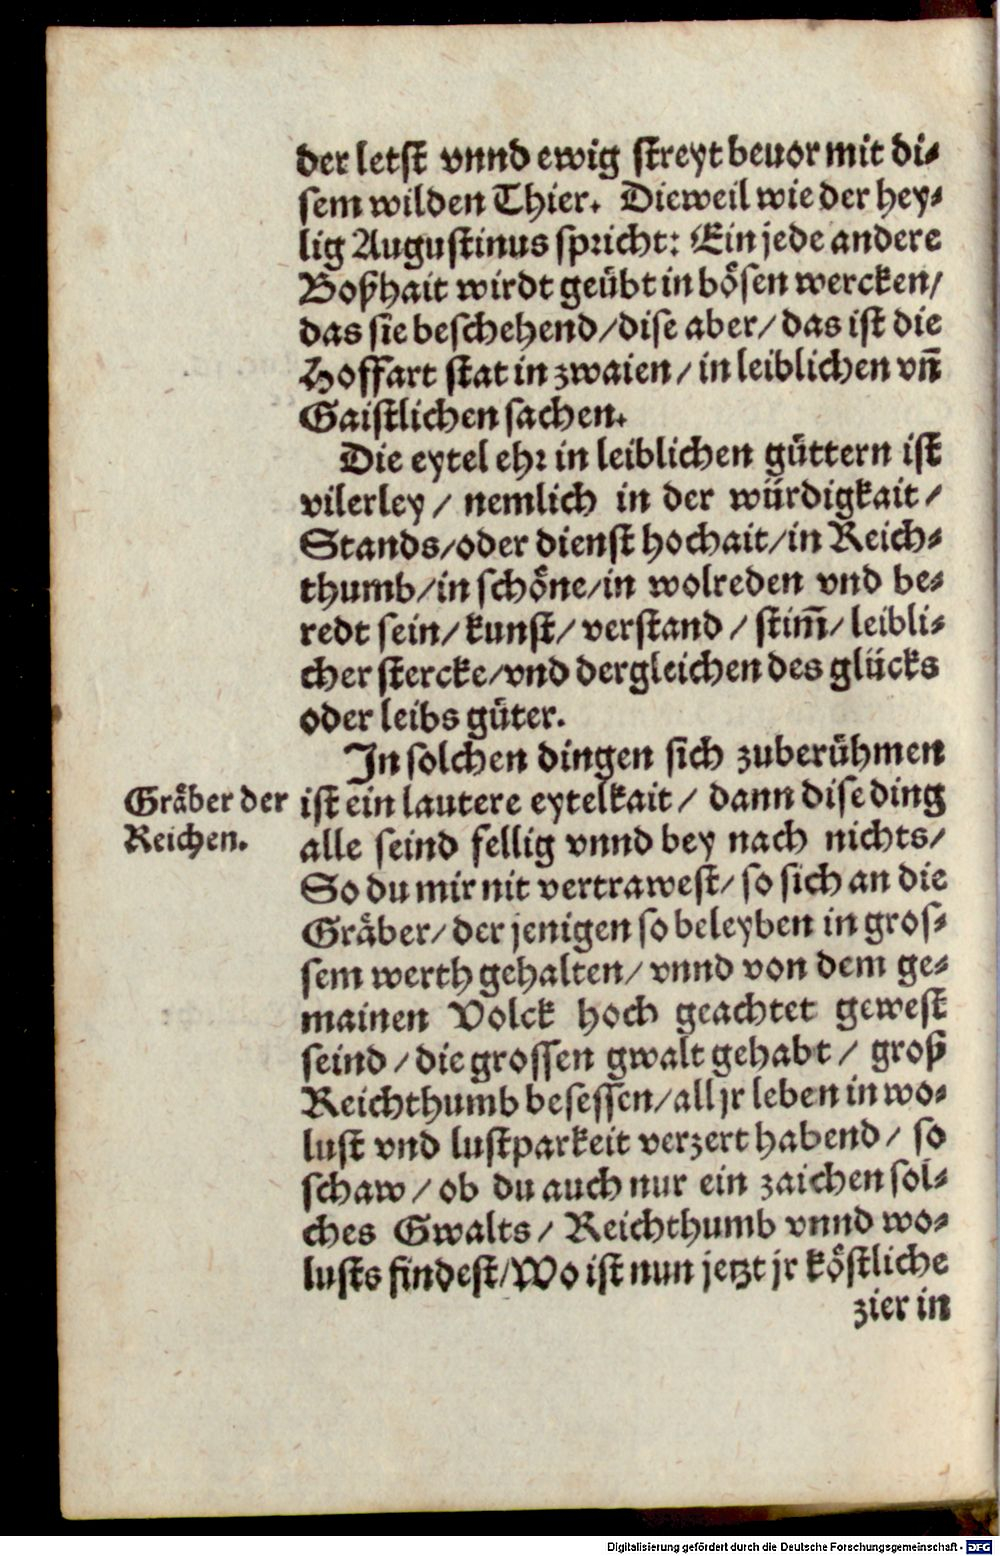 der letst vnnd ewig streyt beuor mit di-
sem wilden Thier. Dieweil wie der hey-
lig Augustinus spricht: Ein jede andere
Boßhait wirdt geübt in bösen wercken/
das sie beschehend/dise aber/das ist die
Hoffart stat in zwaien/in leiblichen vñ
Gaistlichen sachen.
Die eytel ehr in leiblichen güttern ist
vilerley/ nemlich in der würdigkait/
Stands/oder dienst hochait/in Reich-
thumb/in schöne/in wolreden vnd be-
redt sein/kunst/verstand/stim̃/leibli-
cher stercke/vnd dergleichen des glücks
oder leibs güter.
In solchen dingen sich zuberühmen
Gräber der
Reichen.
ist ein lautere eytelkait/ dann dise ding
alle seind fellig vnnd bey nach nichts/
So du mir nit vertrawest/so sich an die
Gräber/der jenigen so beleyben in gros-
sem werth gehalten/vnnd von dem ge-
mainen Volck hoch geachtet gewest
seind/die grossen gwalt gehabt/ groß
Reichthumb besessen/all jr leben in wo-
lust vnd lustparkeit verzert habend/ so
schaw/ob du auch nur ein zaichen sol-
ches Gwalts/ Reichthumb vnnd wo-
lusts findest/Wo ist nun jetzt jr köstliche
zier in
Digitalisierung gefördert durch die Deutsche Forschungsgemeinschaft - DFG